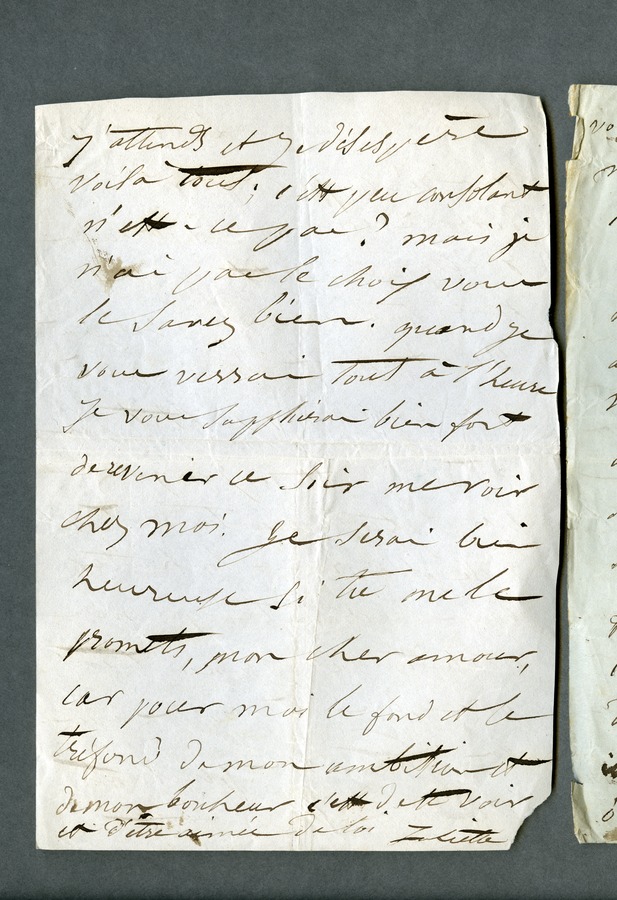 J'attends et je désespère
voilà tout ; c'est peu consolant
n'est-ce pas ? mais je
n'ai pas le choix vous
le savez bien. quand je
vous verrai tout à l'heure
je vous supplierai bien fort
de revenir ce soir me voir
chez moi. Je serai bien
heureuse si tu me le
promets, mon cher amour,
car pour moi le fond et le
tréfond de mon ambition et
de mon bonheur c'est de te voir
et d'être aimée de toi. Juliette